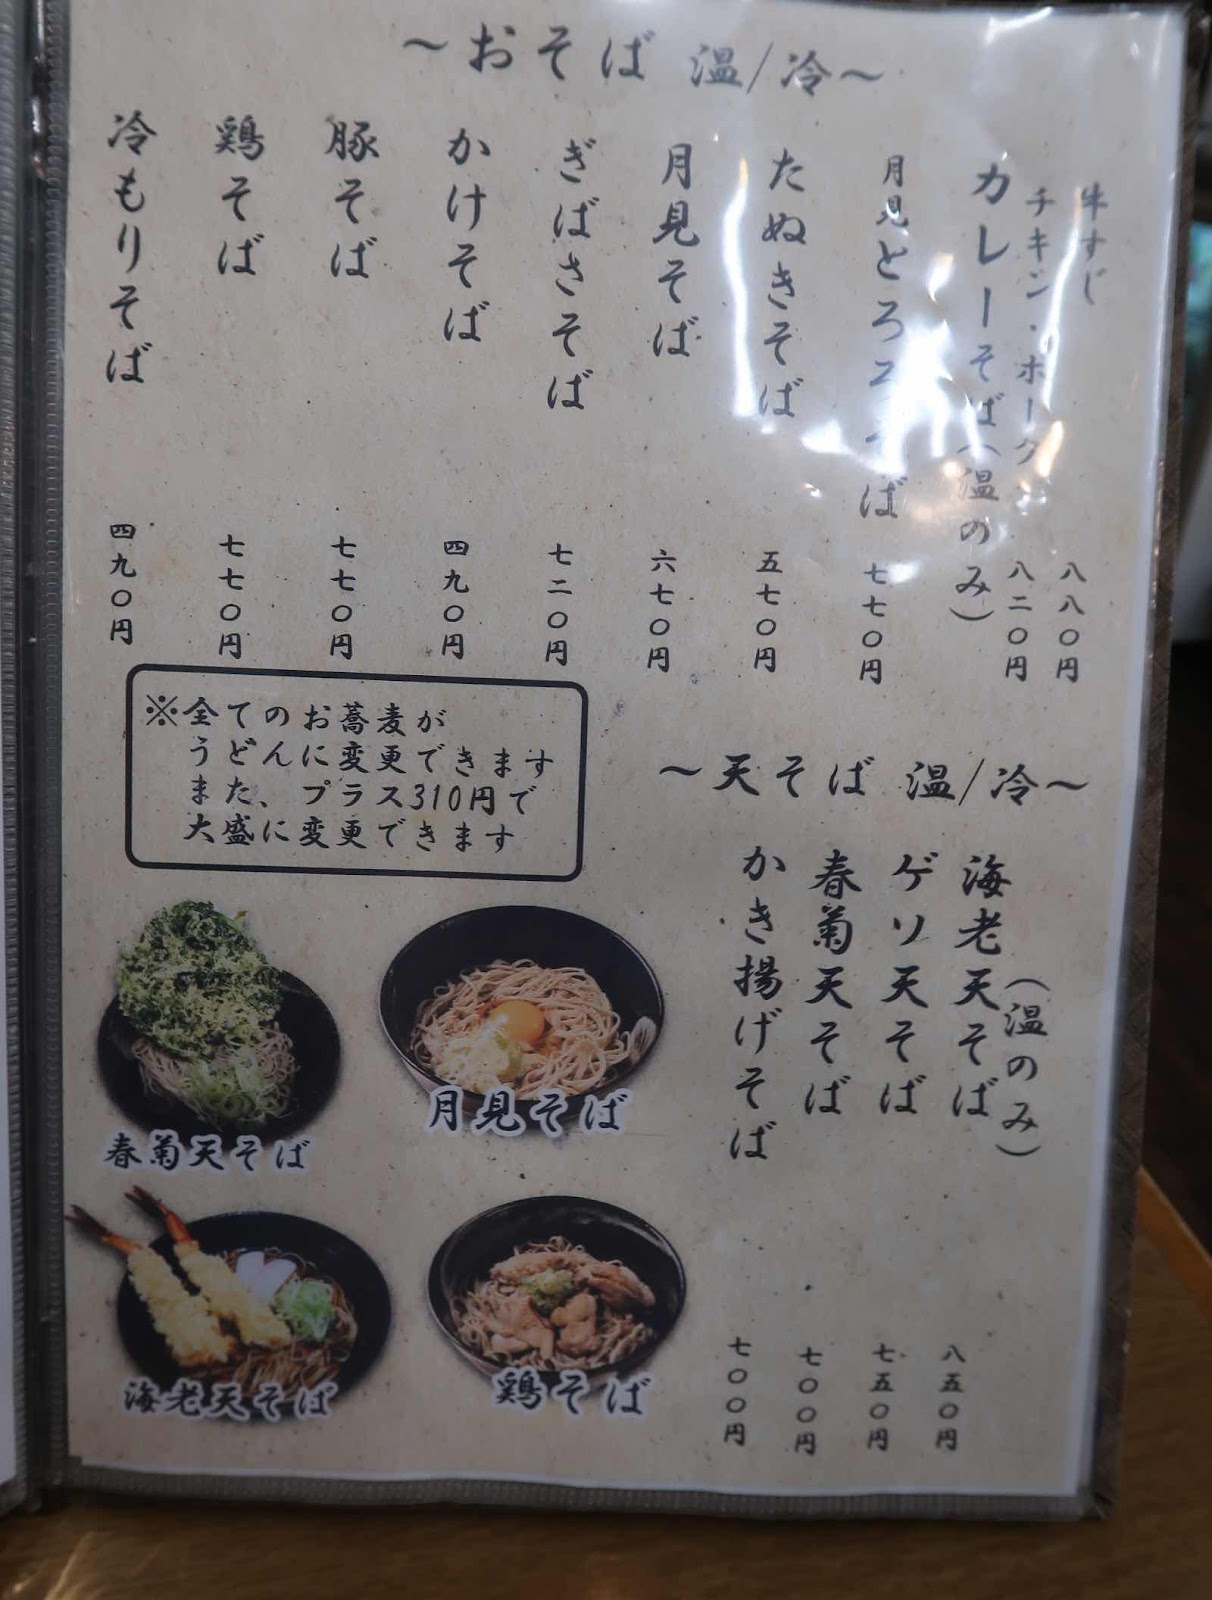 ～おそば 温/冷～
牛すじ 八八〇円
チキン・ポーク 八二〇円
カレーそば(温のみ)
月見とろろそば 七七〇円
たぬきそば 五七〇円
月見そば 六七〇円
ぎばさそば 七二〇円
かけそば 四九〇円
豚そば 七七〇円
鶏そば 七七〇円
冷もりそば 四九〇円
※全てのお蕎麦が
うどんに変更できます
また、プラス310円で
大盛に変更できます
～天そば 温/冷～
(温のみ)
海老天そば 八五〇円
ゲソ天そば 七五〇円
春菊天そば 七〇〇円
かき揚げそば 七〇〇円
春菊天そば
月見そば
海老天そば
鶏そば